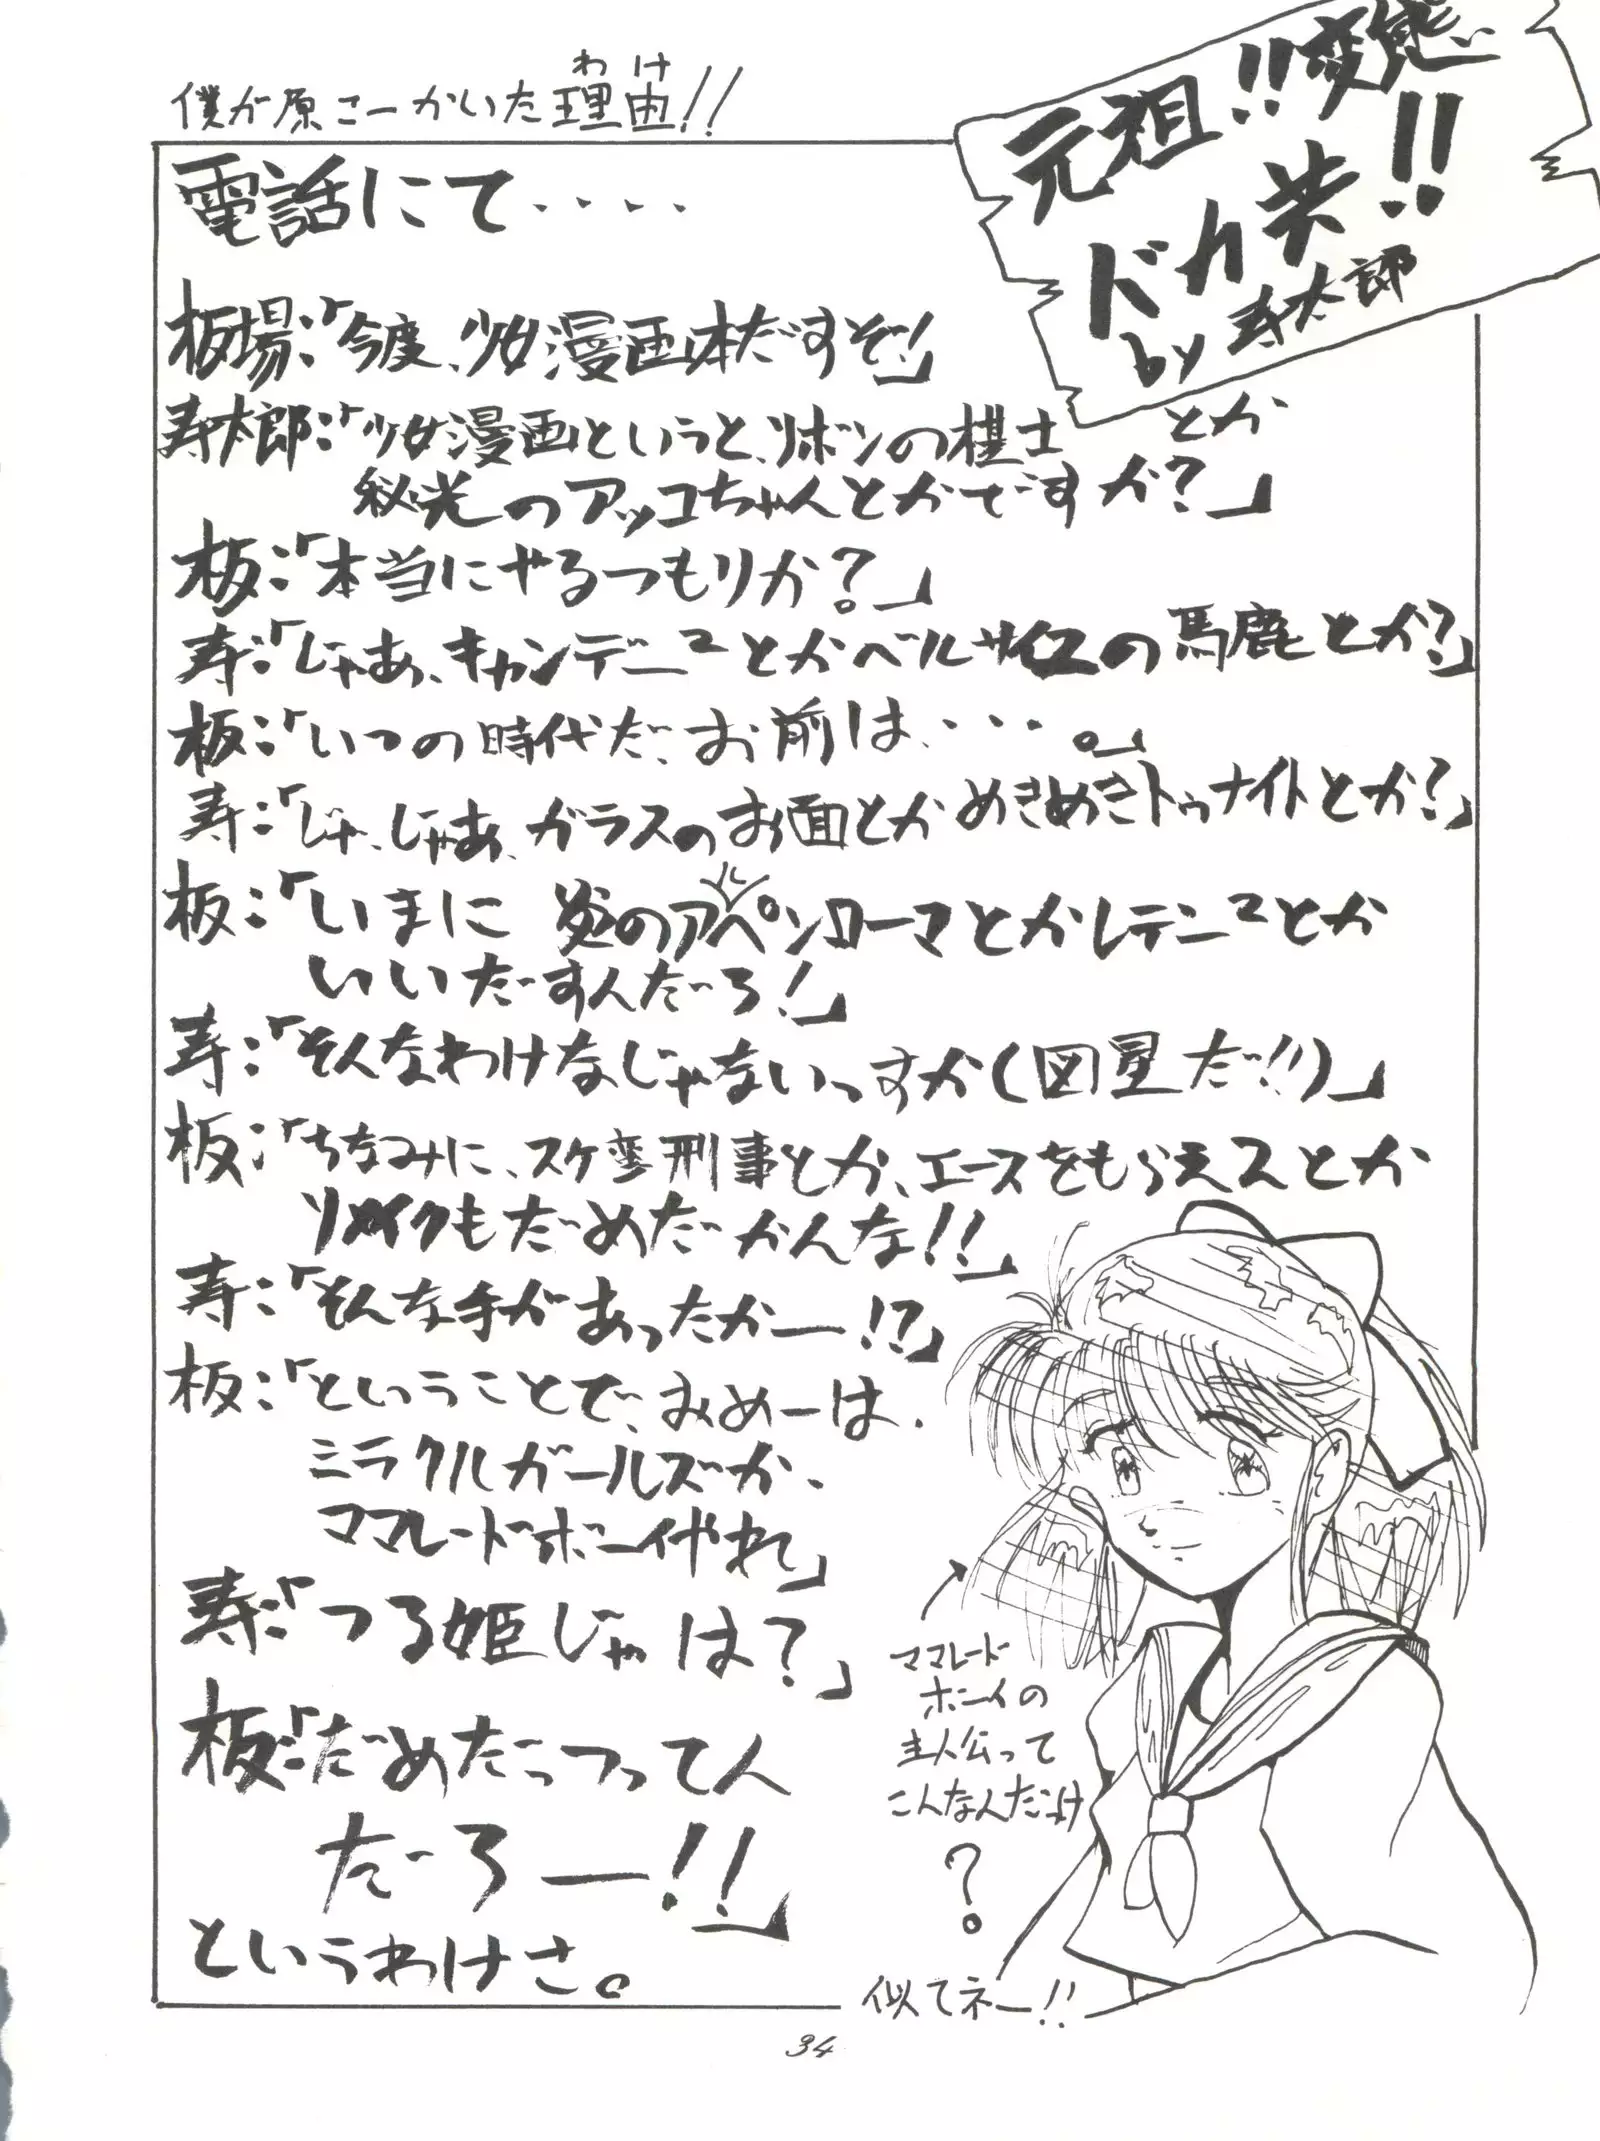 僕が原こーかいた理由!!
わけ
元祖!!変態
ドカ弁!!
by 寿太郎
電話にて・・・・
板場:「今度、少女漫画本だすぞ!」
寿太郎:「少女漫画というと、リボンの棋士とか
秘光のアッコちゃんとかですか?」
板:「本当にやるつもりか?。」
寿:「じゃあ、キャンデーュとかベルサイユの馬鹿とか?」
板:「いつの時代だ、お前は・・・・。」
寿:「じゃ、じゃあ、ガラスのお面とかめきめきトゥナイトとか?」
板:「いまに 炎のアルペンローマとかレテニューとか
いいだすんだろ!」
寿:「そんなわけなじゃないっすか(図星だ!!)」
板:「ちなみに、スケ番刑事とか、エースをもらえ2とか
リメイクもだめだかんな!!」
寿:「そんな手があったかー!?」
板:「ということで、おめーは、
ミラクルガールズか、
ママレードボーイやれ」
寿:「つる姫じゃは?」
板:「だめだっつってん
だろー!!」
というわけさ。
ママレード
ボーイの
主人公って
こんなんだっけ
?
似てネー!!
34